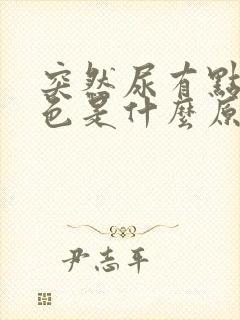 突然尿有點
色是什麼原
尹志平